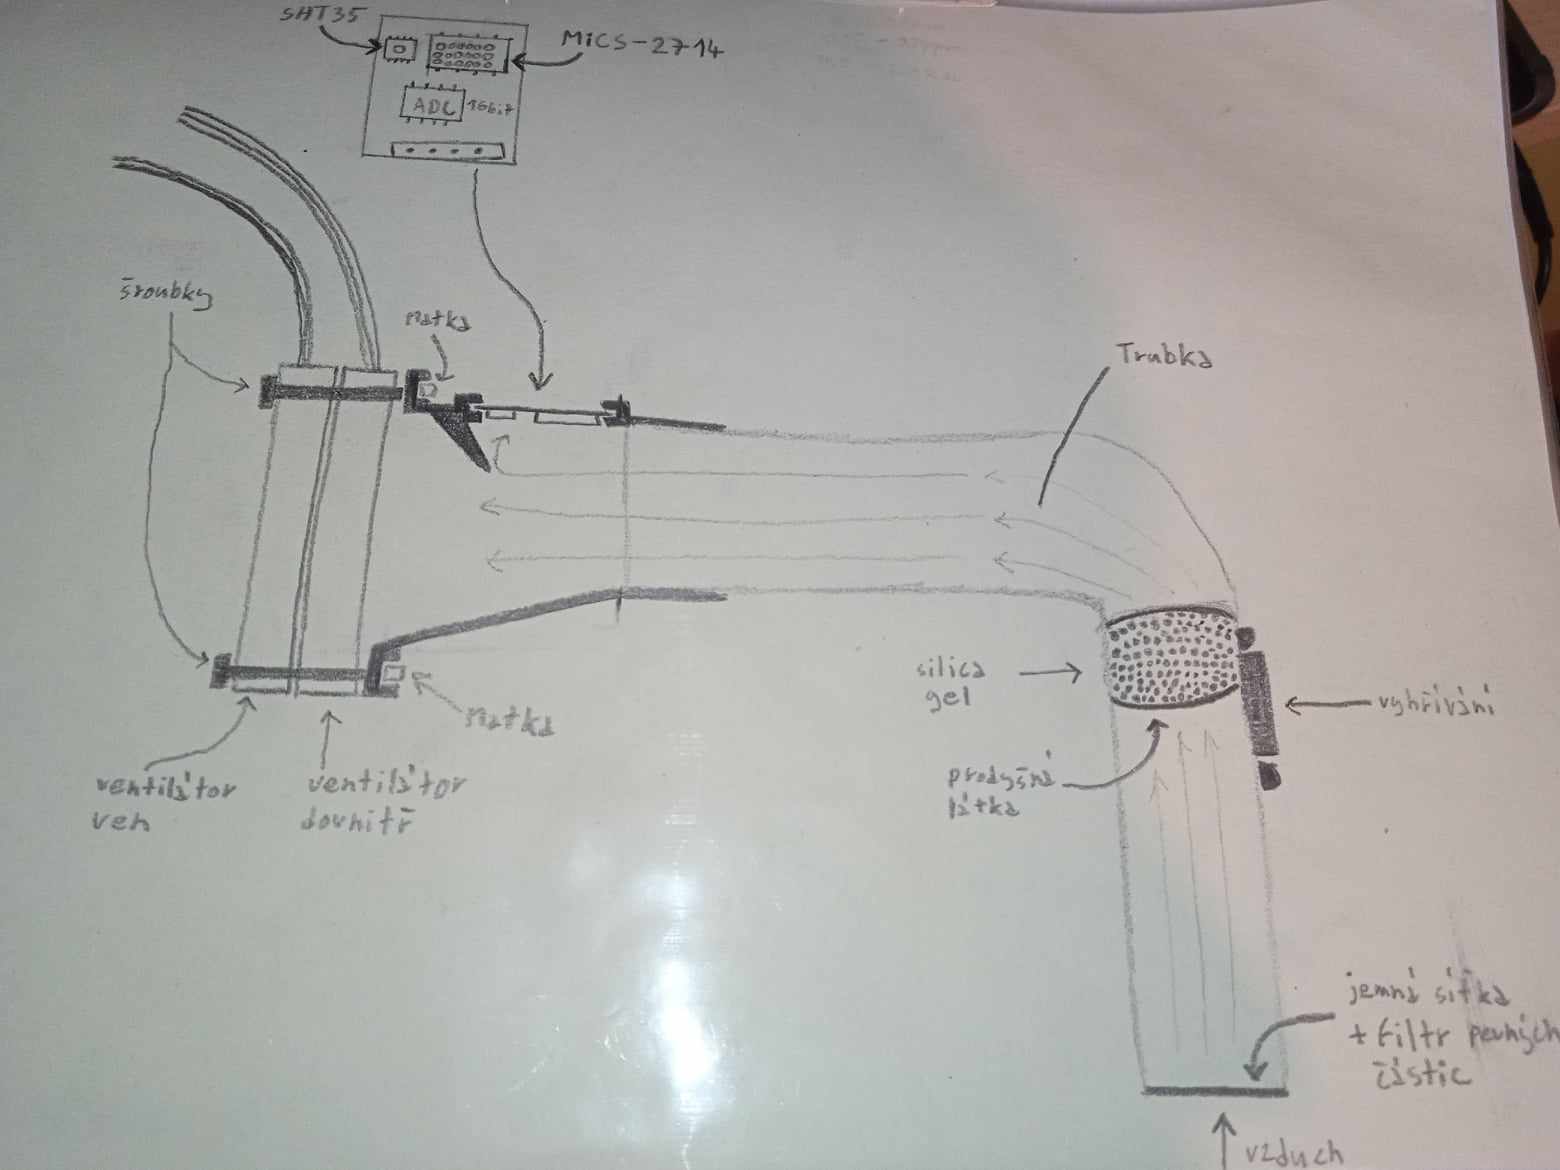 SHT35
MiCS-2714
ADC 16bit
šroubky
matka
Trubka
silica
gel
vyhřívání
matka
prodyšná
látka
ventilátor
ven
ventilátor
dovnitř
jemná síťka
+ filtr pevných
částic
vzduch